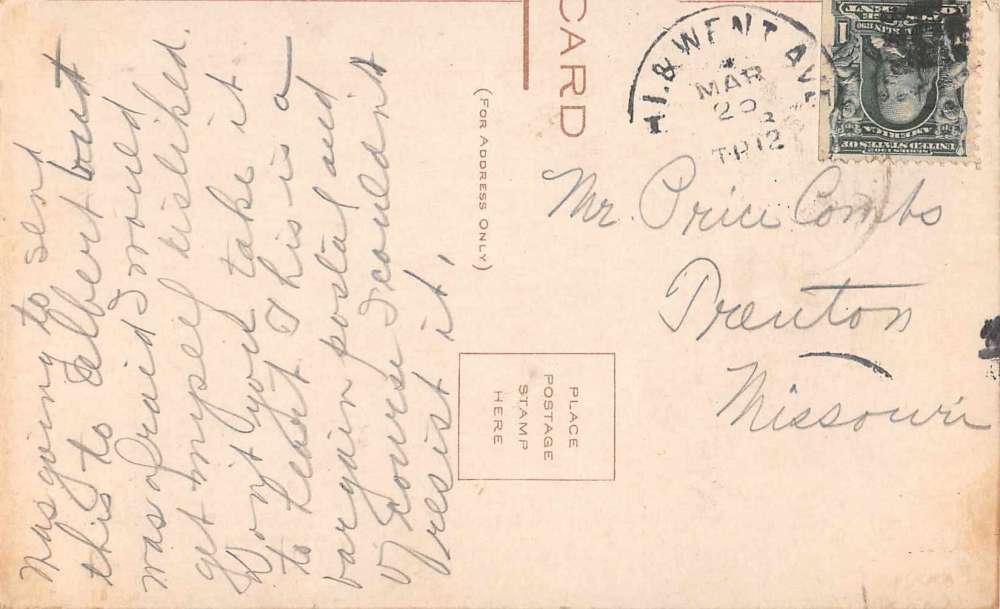 Was going to send
this to Albert but
was afraid I would
get myself disliked.
Don't you take it
to heart This is a
bargain postal and
of course I couldn't
resist it.
CARD
(FOR ADDRESS ONLY)
PLACE
POSTAGE
STAMP
HERE
& WENT. AVE
MAR
12
Mr. Price Combs
Trenton
Missouri
UNITED STATES OF
AMERICA
1